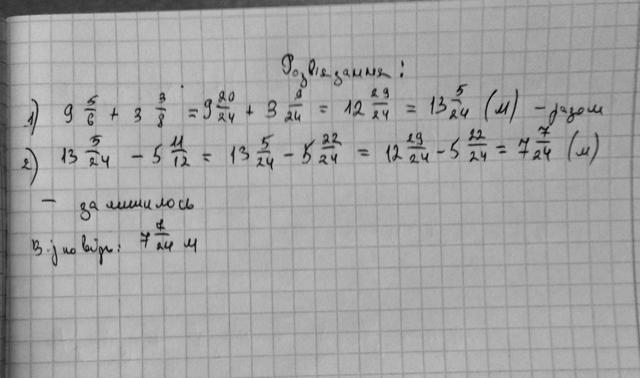 Розв'язання:
1) 9 5/6 + 3 3/8 = 9 20/24 + 3 9/24 = 12 29/24 = 13 5/24 (м) – разом
2) 13 5/24 – 5 11/12 = 13 5/24 – 5 22/24 = 12 29/24 – 5 22/24 = 7 7/24 (м)
– залишилось
Відповідь: 7 7/24 м